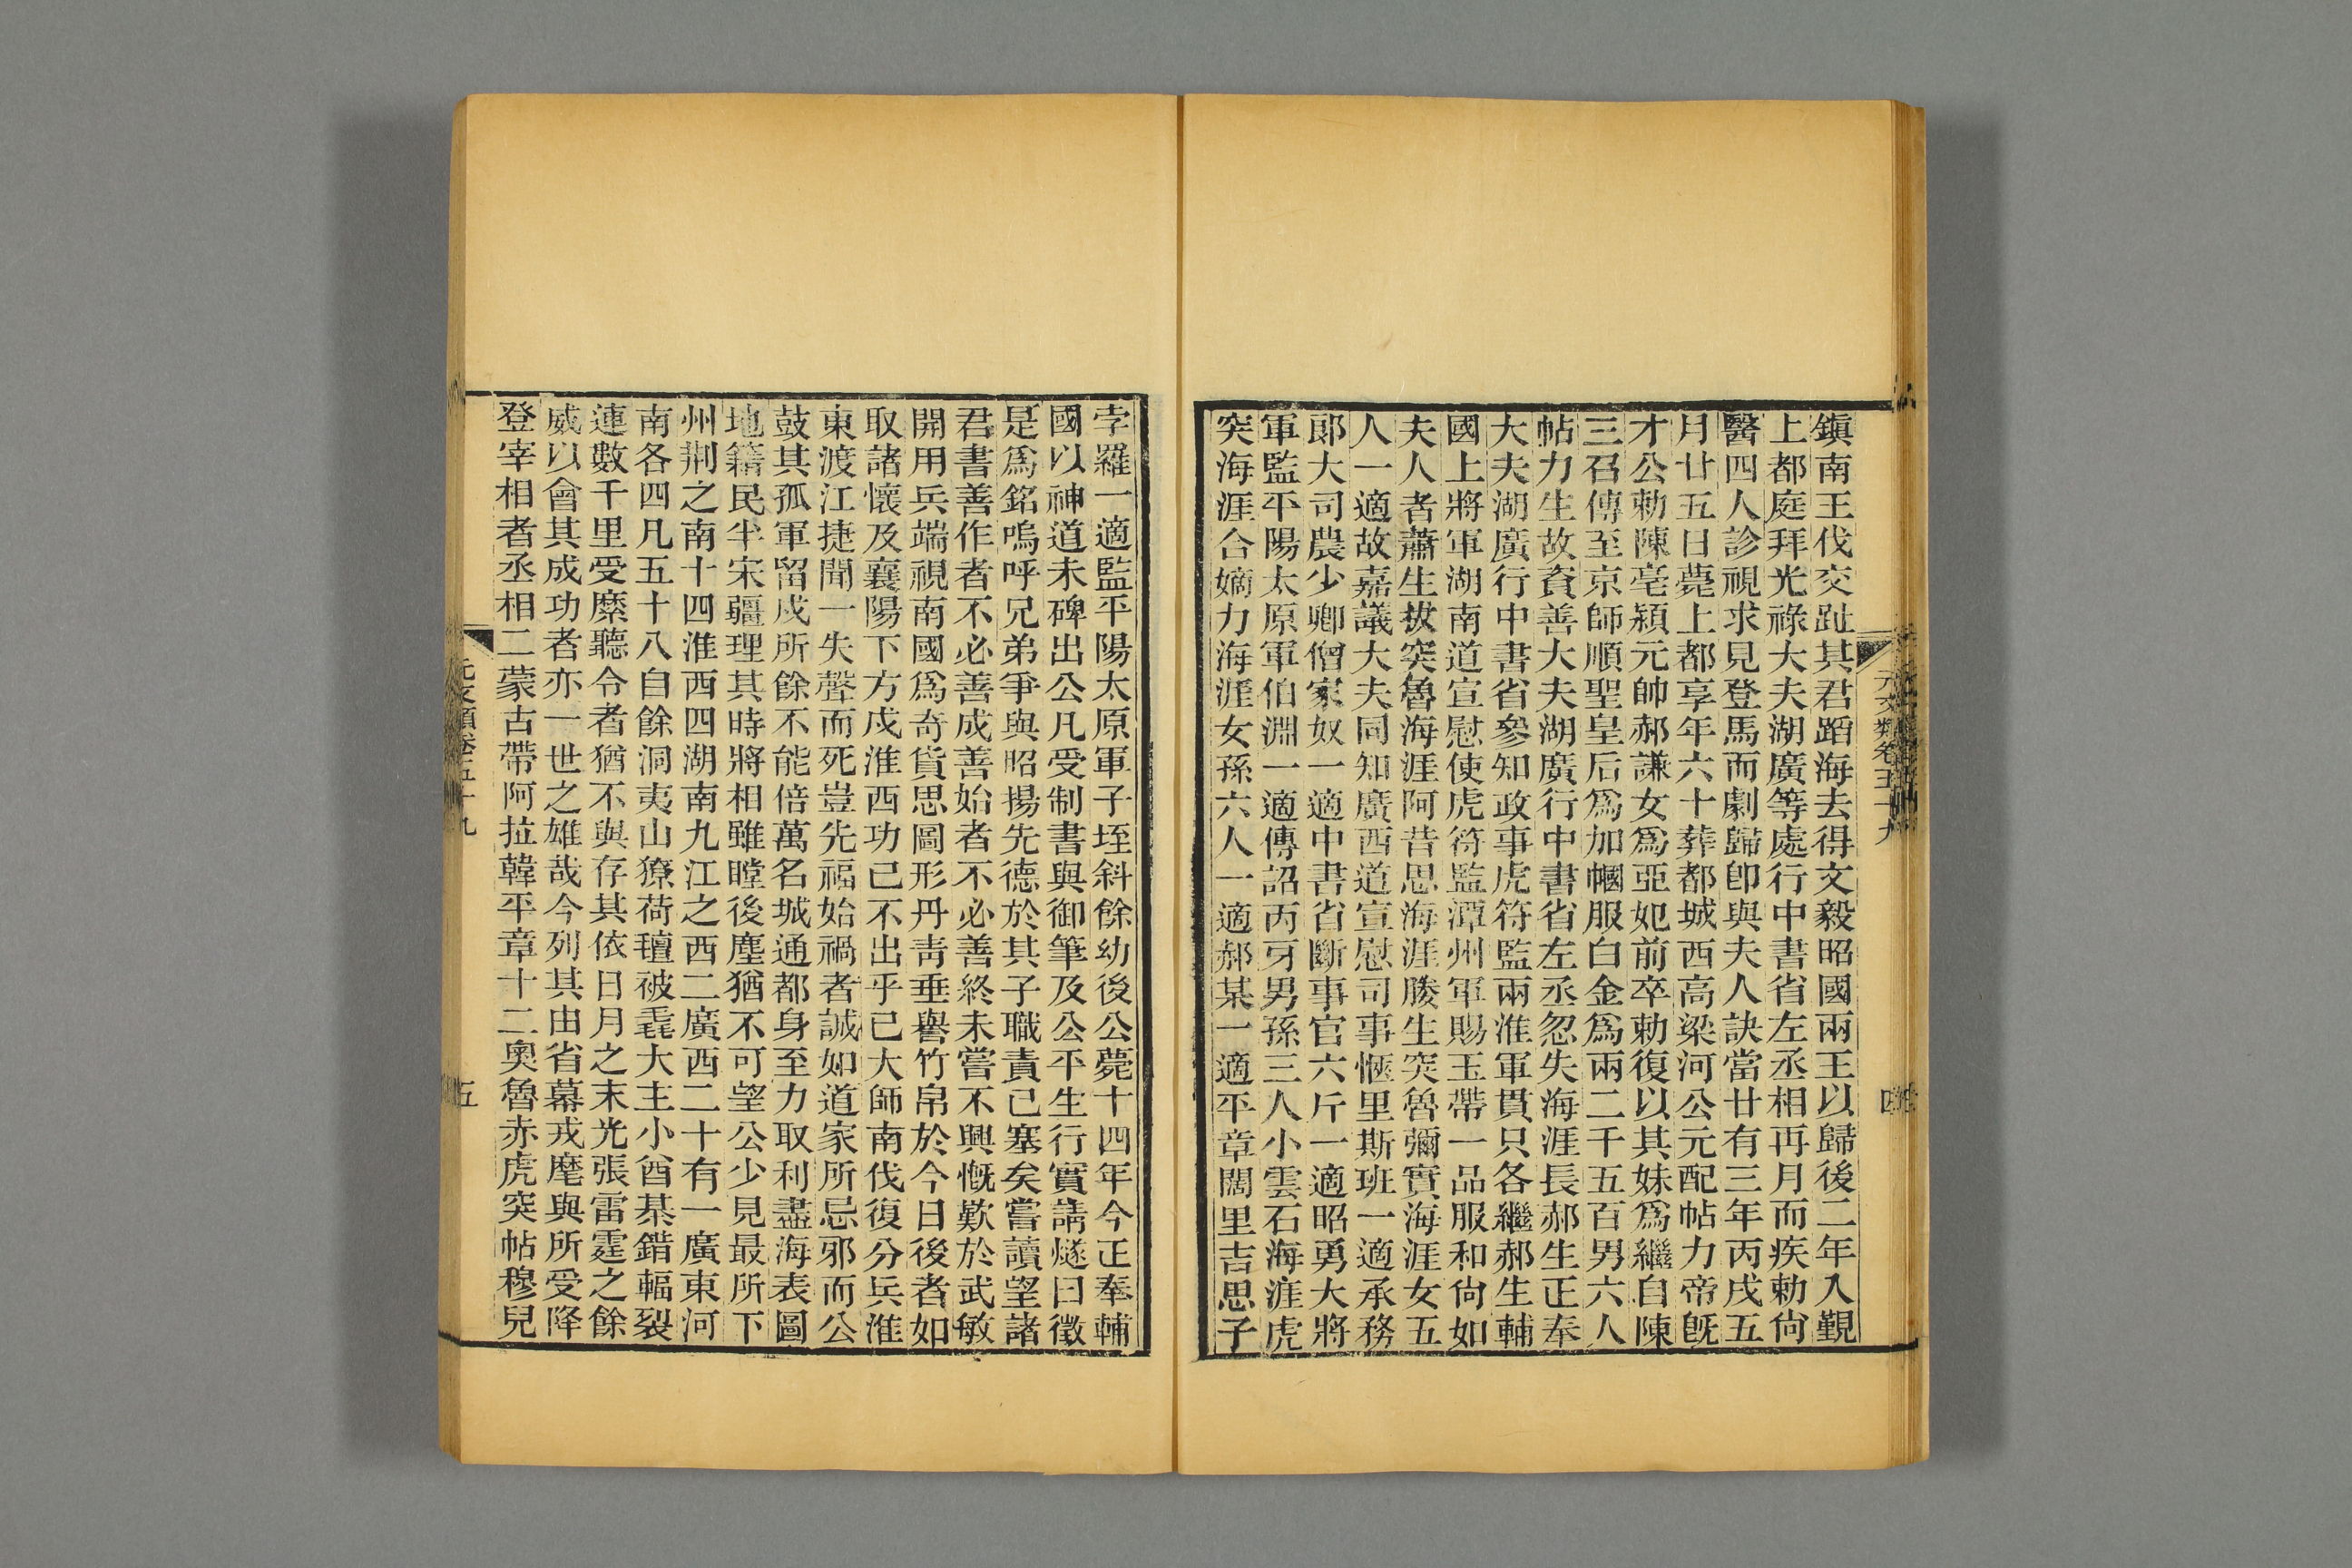 元文類卷五十九
四
鎭南王伐交趾其君蹈海去得文毅昭國兩王以歸後二年入覲
上都庭拜光祿大夫湖廣等處行中書省左丞相再月而疾勅尙
醫四人診視求見登馬而劇歸卽與夫人訣當廿有三年丙戌五
月廿五日薨上都享年六十葬都城西高梁河公元配帖力帝旣
才公勅陳亳潁元帥郝謙女爲亞妃前卒勅復以其妹爲繼自陳
三召傳至京師順聖皇后爲加幗服白金爲兩二千五百男六人
帖力生故資善大夫湖廣行中書省左丞忽失海涯長郝生正奉
大夫湖廣行中書省參知政事虎符監兩淮軍貫只各繼郝生輔
國上將軍湖南道宣慰使虎符監潭州軍賜玉帶一品服和尙如
夫人者蕭生拔突魯海涯阿昔思海涯滕生突魯彌實海涯女五
人一適故嘉議大夫同知廣西道宣慰司事愜里斯班一適承務
郞大司農少卿僧家奴一適中書省斷事官六斤一適昭勇大將
軍監平陽太原軍伯淵一適傳詔丙牙男孫三人小雲石海涯虎
突海涯合嫡力海涯女孫六人一適郝某一適平章闊里吉思子
孛羅一適監平陽太原軍子埕斜餘幼後公薨十四年今正奉輔
國以神道未碑出公凡受制書與御筆及公平生行實請燧曰徵
是爲銘嗚呼兄弟爭與昭揚先德於其子職責己塞矣嘗讀望諸
君書善作者不必善成善始者不必善終未嘗不興慨歎於武敏
開用兵端視南國爲奇貨思圖形丹靑垂譽竹帛於今日後者如
取諸懷及襄陽下方戍淮西功已不出乎已大師南伐復分兵淮
東渡江捷聞一失聲而死豈先福始禍者誠如道家所忌邪而公
鼓其孤軍留戍所餘不能倍萬名城通都身至力取利盡海表圖
地籍民半宋疆理其時將相雖瞠後塵猶不可望公少見最所下
州荆之南十四淮西四湖南九江之西二廣西二十有一廣東河
南各四凡五十八自餘洞夷山獠荷氊被毳大主小酋棊錯輻裂
連數千里受縻聽令者猶不與存其依日月之末光張雷霆之餘
威以會其成功者亦一世之雄哉今列其由省幕戎麾與所受降
登宰相者丞相二蒙古帶阿拉韓平章十二奧魯赤虎突帖穆兒
元文類卷五十九
五